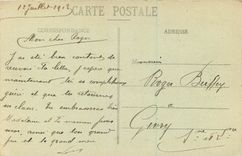 12 Juillet 1913
CARTE POSTALE
CORRESPONDANCE
ADRESSE
Mon cher Roger
J'ai été bien content de
recevoir ta lettre, j'espère que
maintenant tu es complètement
guéri et que tu
en classe. Tu embrasseras bien
Madeleine et ta maman pour
nous, ainsi que ton grand
père et ta grand mère
Monsieur
Roger
Givry